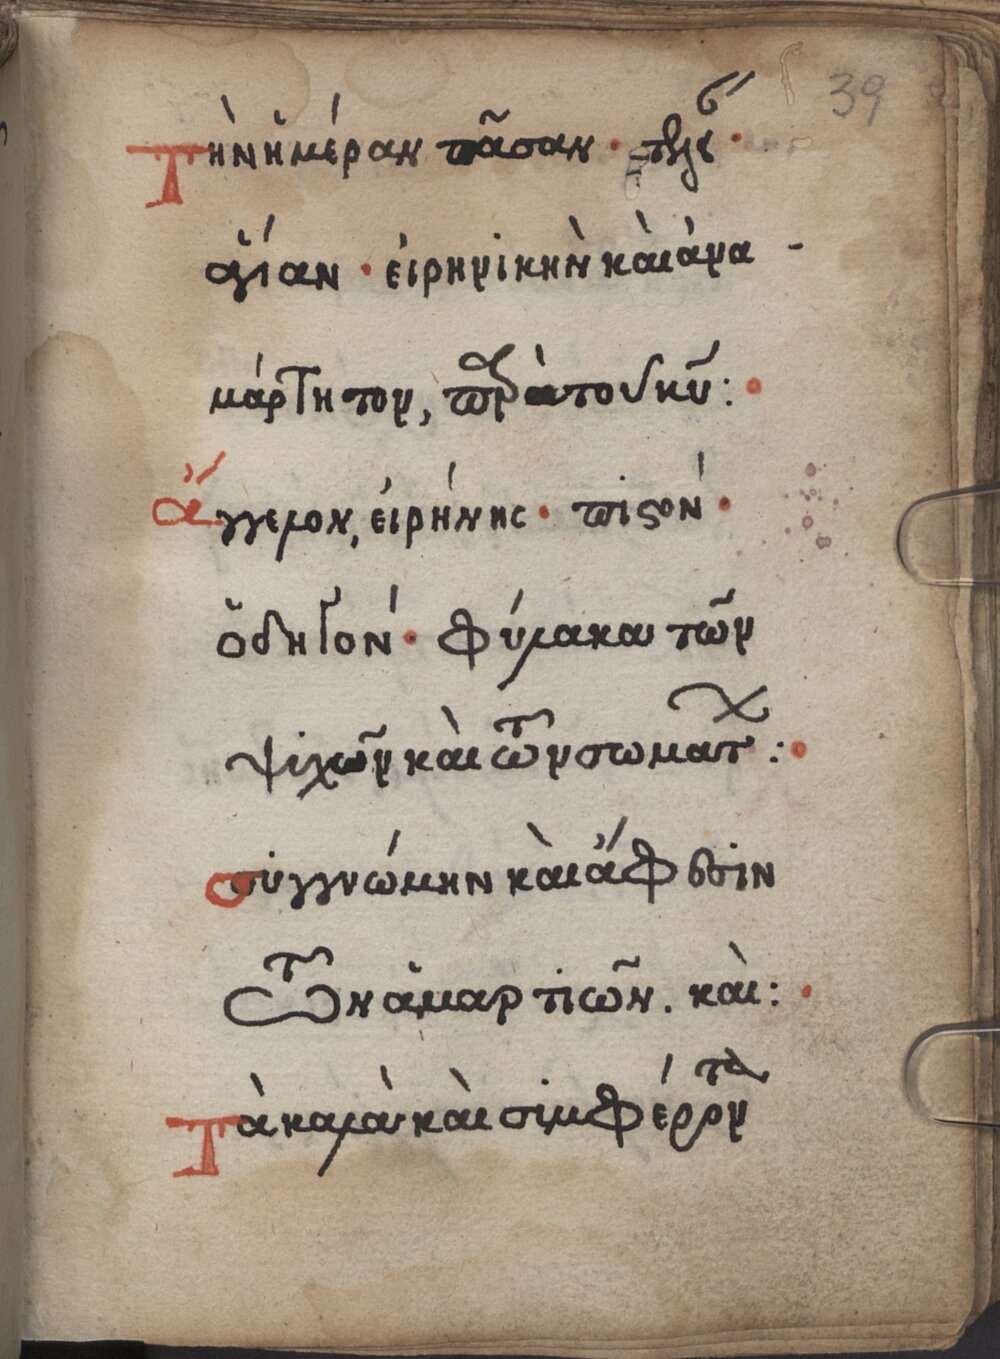 39
Τὴν ἡμέραν πᾶσαν · τελεί
ἁγίαν · εἰρηνικὴν καὶ ἀνα
μάρτητον, παρὰ τοῦ κυ̅ :·
ἄγγελον, εἰρήνης · πιστὸν ·
ὁδηγὸν · φύλακα τῶν
ψιχῶν καὶ τῶν σωμάτων :·
σύγγνώμην καὶ ἄφεσιν
τῶν ἁμαρτιῶν . καὶ :·
Τὰ καλὰ καὶ σιμφέροντα